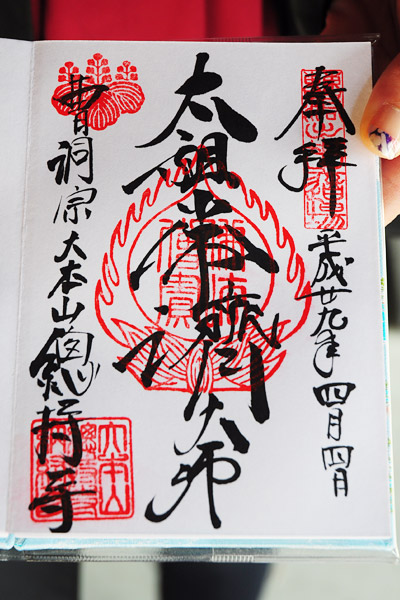 奉拝
平成廿九年四月四日
太祖常濟大師
曹洞宗大本山總持寺
大本山